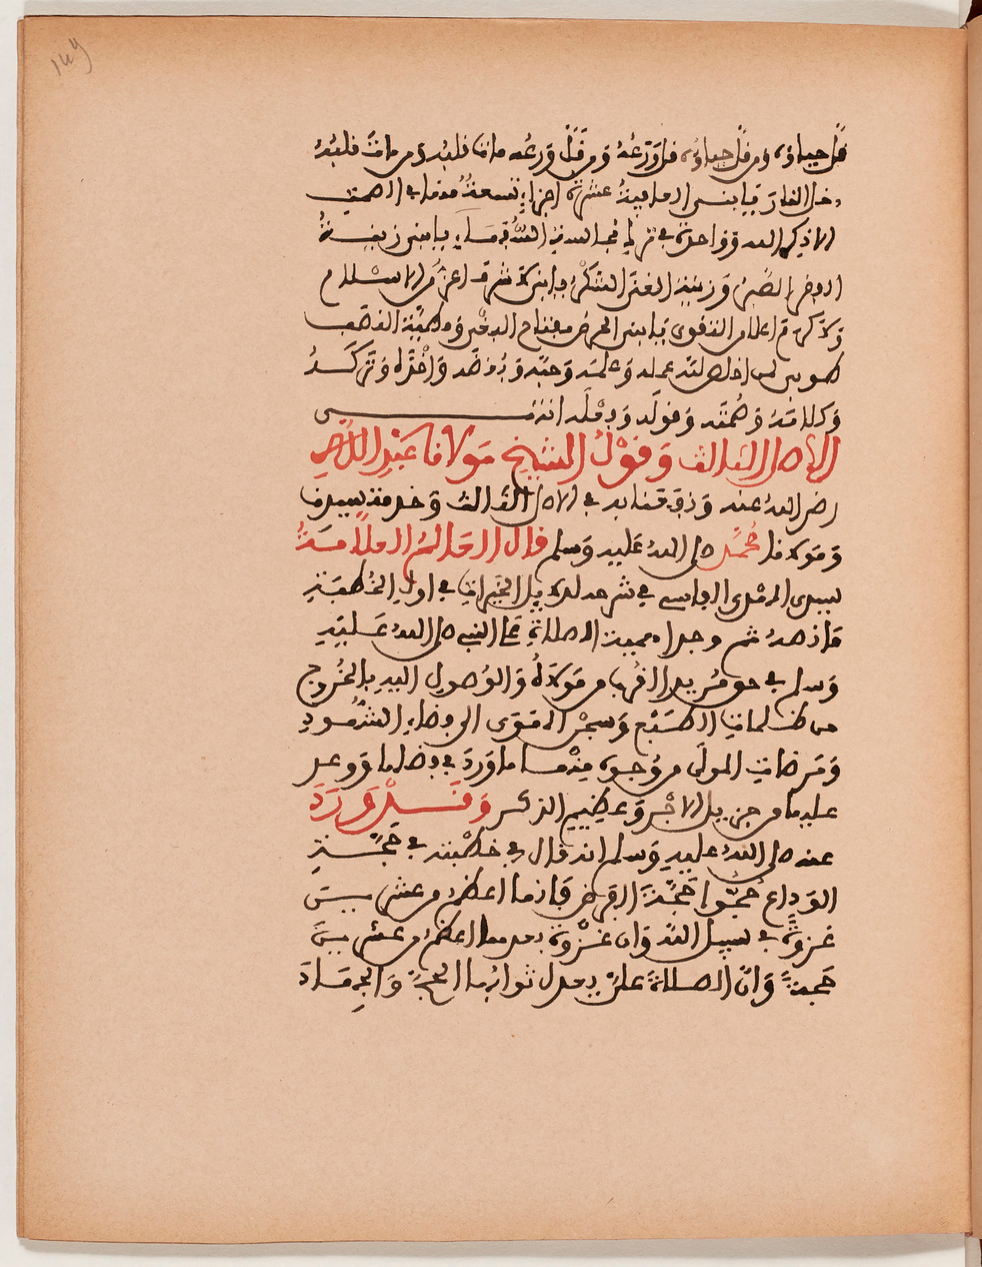 149
قل حياؤه ومن قل حياؤه قل ورعه ومن قل ورعه مات قلبه ومن مات قلبه
دخل النار يا بني العافية عشرة اجزاء تسعة منها في الصمت
الا بذكر الله وواحدة في ترك مجالسة السفهاء يا بني زينة
الفقر الصبر وزينة الغنى الشكر يا بني لا شرف اعز من الاسلام
ولا كرم اعلا من التقوى يا بني الحرص مفتاح البغي ومطية النصب
طوبى لمن اخلص لله عمله وعلمه وحبه وبغضه واخذه وتركه
وكلامه وصمته وقوله وفعله انتهى
الاصل الثالث وقول الشيخ مولانا عبد الله
رضي الله عنه في الاصل الثالث وخدمة سيدنا
ومولانا محمد صلى الله عليه وسلم قال العالم العلامة
سيدي المهدي الفاسي في شرحه لدلايل الخيرات في اول الخطبة
ما نصه ثم وجه اهمية الصلاة على النبي صلى الله عليه
وسلم في حق مريد القرب من مولاه والوصول اليه بالخروج
من ظلمات الطبع وسجن الهوى الى فضاء الشهود
ومرضات المولى من وجوه منها ما ورد في فضلها ووعد
عليها من جزيل الاجر وعظيم الذكر وقد ورد
عنه صلى الله عليه وسلم انه قال في خطبته في حجة
الوداع حجوا حجة الفرض فانها اعظم من عشرين
غزوة في سبيل الله وان غزوة بعدها اعظم من عشرين
حجة وان الصلاة علي يعدل ثوابها الحج والجهاد